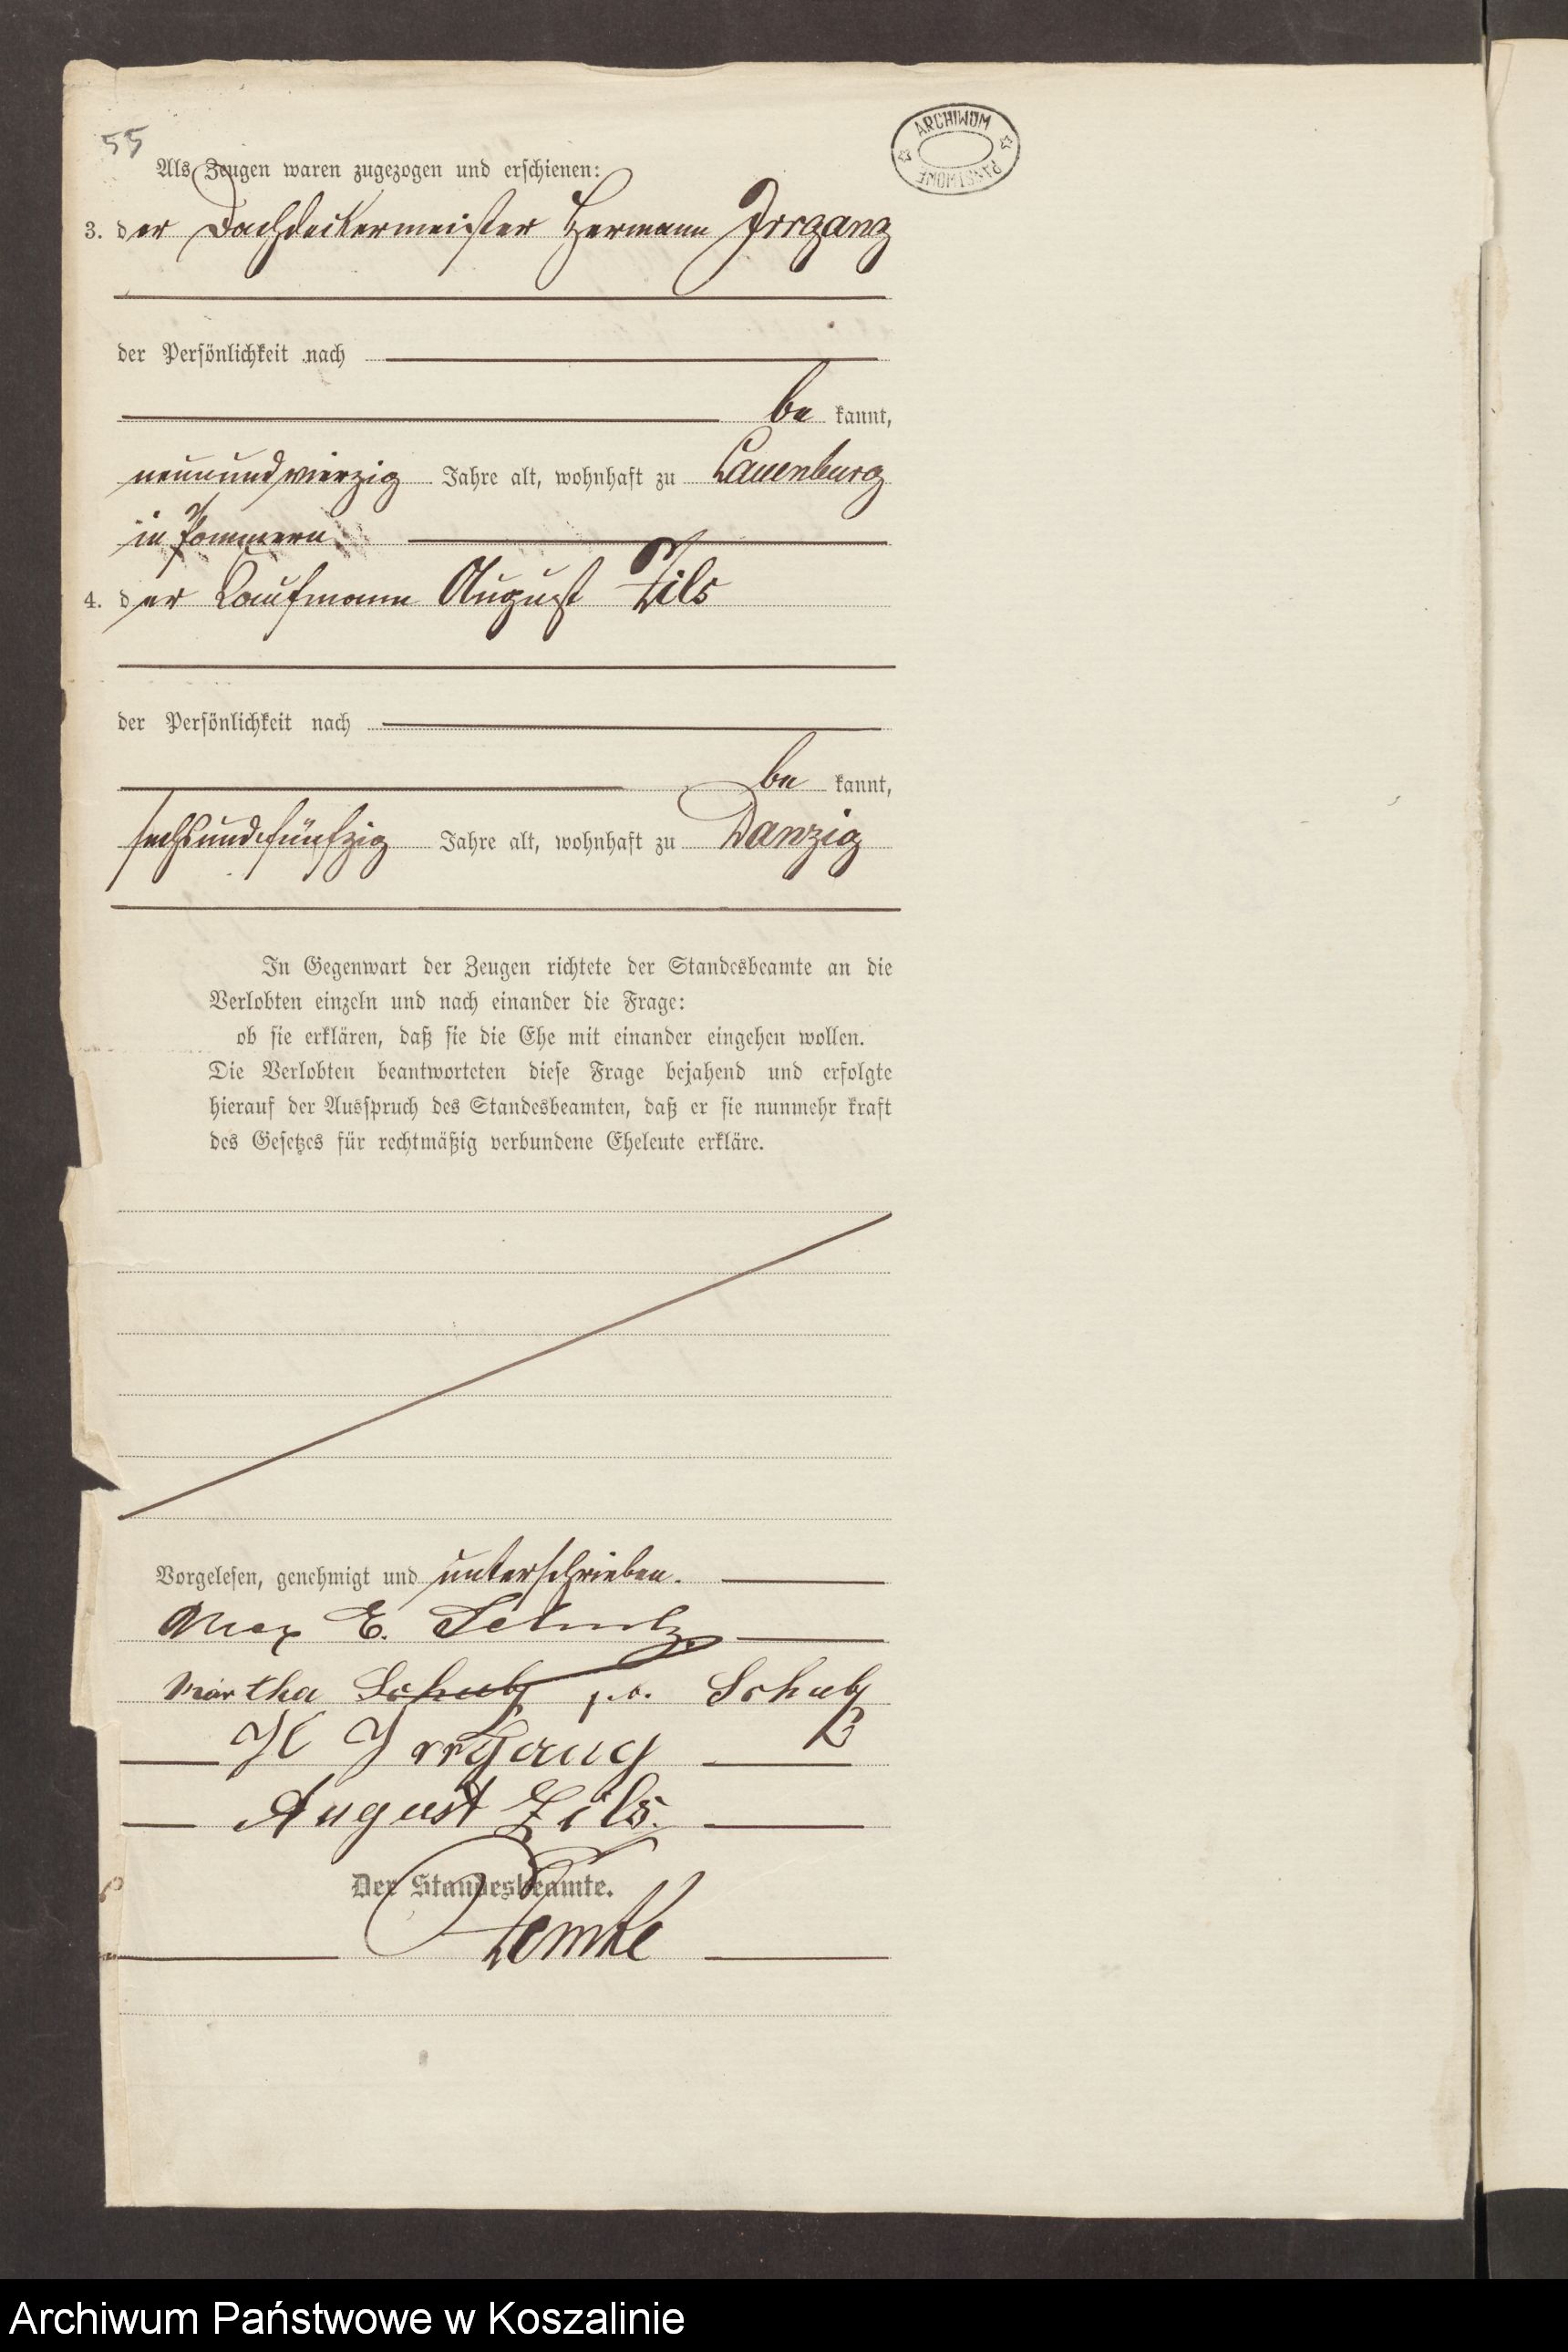 55
ARCHIWUM
PAŃSTWOWE
Als Zeugen waren zugezogen und erschienen:
3. der Dachdeckermeister Hermann Irrgang
der Persönlichkeit nach
be kannt,
neunundvierzig Jahre alt, wohnhaft zu Lauenburg
in Pommern
4. der Kaufmann August Zils
der Persönlichkeit nach
be kannt,
sechsundfünfzig Jahre alt, wohnhaft zu Danzig
In Gegenwart der Zeugen richtete der Standesbeamte an die
Verlobten einzeln und nach einander die Frage:
ob sie erklären, daß sie die Ehe mit einander eingehen wollen.
Die Verlobten beantworteten diese Frage bejahend und erfolgte
hierauf der Ausspruch des Standesbeamten, daß er sie nunmehr kraft
des Gesetzes für rechtmäßig verbundene Eheleute erkläre.
Vorgelesen, genehmigt und unterschrieben.
Max E. Schulz
Martha Schulz Schulz
H Irrgang
August Zils.
Der Standesbeamte.
Zemke
Archiwum Państwowe w Koszalinie